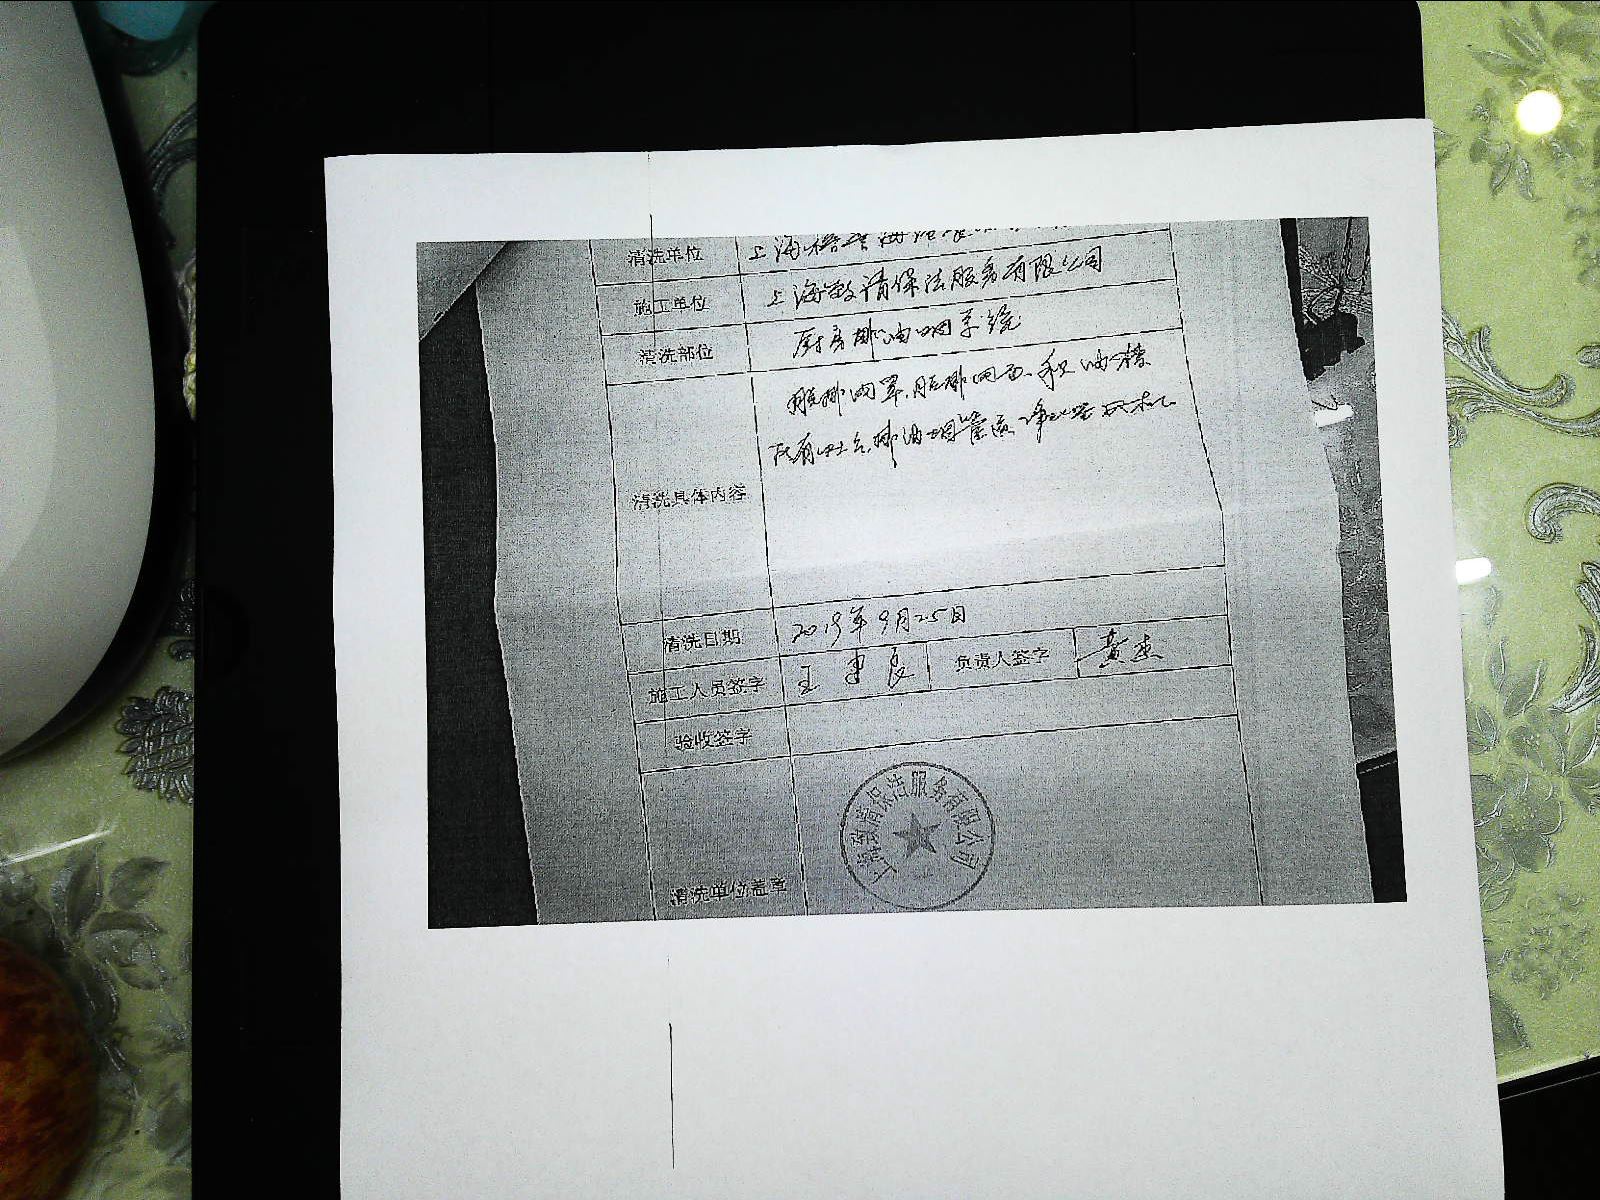 清洗单位 上海
施工单位 上海致清保洁服务有限公司
清洗部位 厨房排油烟系统
脱排网罩.脱排网面.积油槽
所有灶台.排油烟管道 净化器 风机
清洗具体内容
清洗日期 2019年9月25日
施工人员签字 王 良 负责人签字 黄
验收签字
上海致清保洁服务有限公司
清洗单位盖章